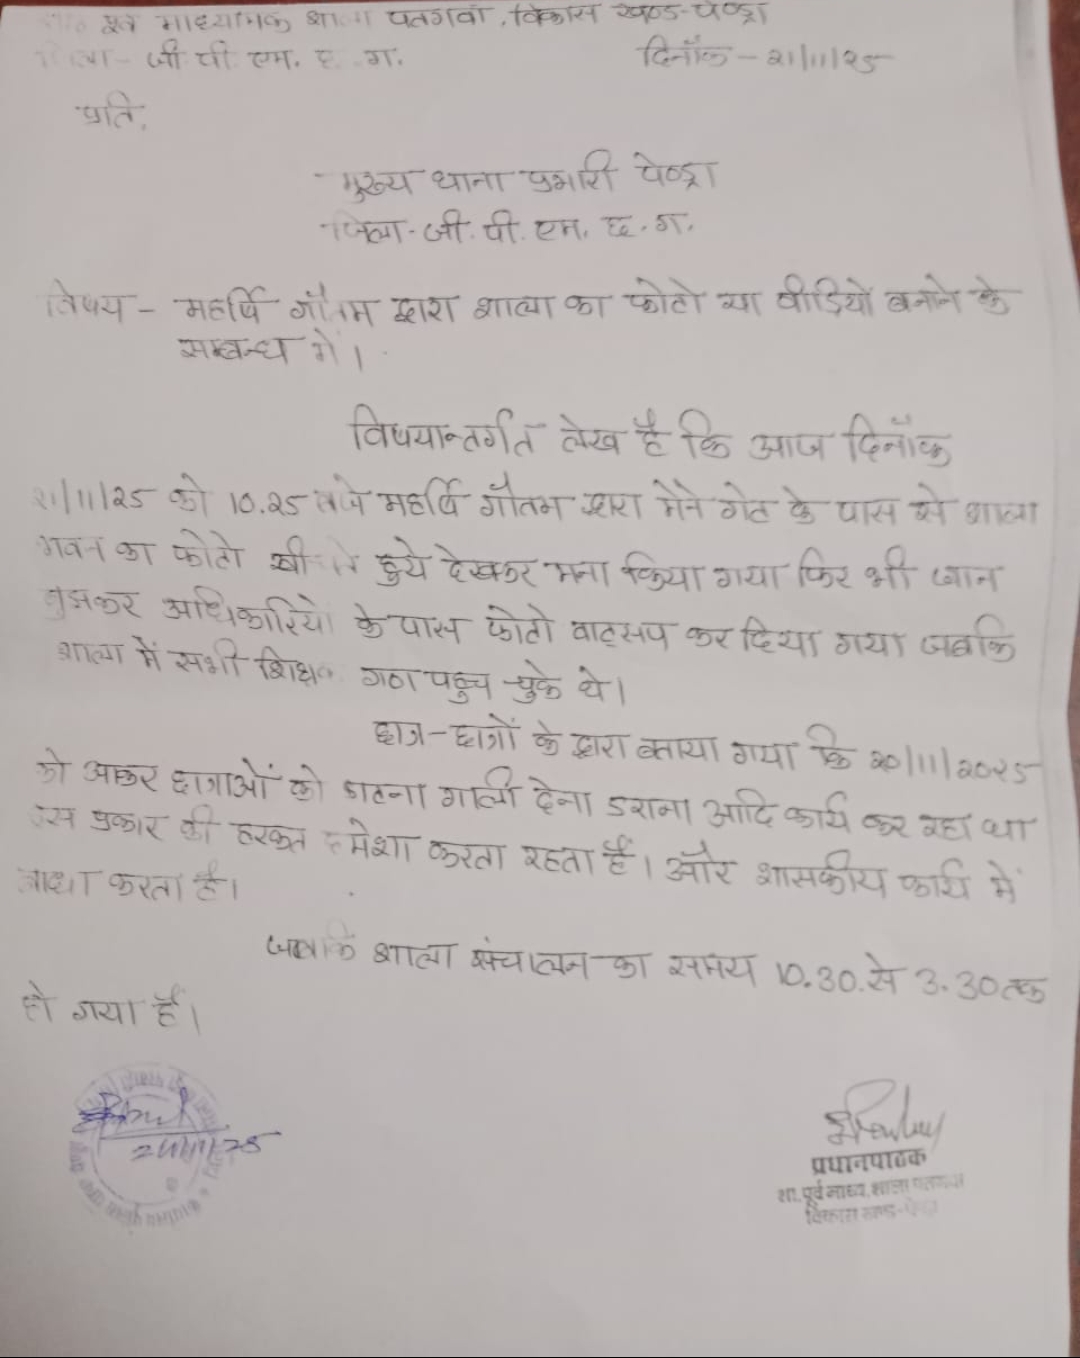 पूर्व माध्यमिक शाला पतगवां, विकास खण्ड-पेण्ड्रा
जिला - जी. पी. एम. छ. ग. दिनाँक - 21/11/25
प्रति,
मुख्य थाना प्रभारी पेण्ड्रा
जिला - जी. पी. एम. छ. ग.
विषय - महर्षि गौतम द्वारा शाला का फोटो या वीडियो बनाने के
सम्बन्ध में।
विषयान्तर्गत लेख है कि आज दिनाँक
21/11/25 को 10.25 बजे महर्षि गौतम द्वारा मेने गेट के पास से शाला
भवन का फोटो खीचते हुये देखकर मना किया गया फिर भी जान
बुझकर अधिकारियो के पास फोटो वाट्सप कर दिया गया जबकि
शाला में सभी शिक्षक गण पहुच चुके थे।
छात्र-छात्रों के द्वारा बताया गया कि 20/11/2025
को आकर छात्राओं को डाटना गाली देना डराना आदि कार्य कर रहा था
इस प्रकार की हरकत हमेशा करता रहता है। और शासकीय कार्य में
बाधा करता है।
जबकि शाला संचालन का समय 10.30 से 3.30 तक
हो गया है।
21/11/25
प्रधानपाठक
शा. पूर्व माध्य. शाला पतगवां
विकास खण्ड-पेण्ड्रा